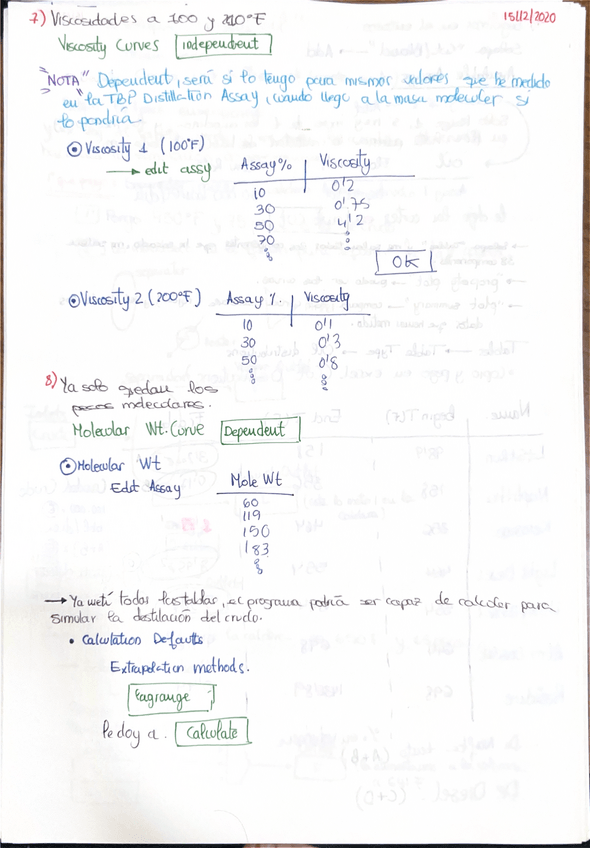 15/12/2020
7) Viscosidades a 100 y 210°F
Viscosity Curves Independent
"NOTA" Dependent, será si lo tengo para mismos valores que he medido
en "la TBP Distillation Assay, cuando llego a la masa molecular si
lo pondría.
Viscosity 1 (100°F)
→ edit assy
Assay % Viscosity
10 0'2
30 0'75
50 4'2
70
OK
Viscosity 2 (200°F) Assay %. Viscosity
10 0'1
30 0'3
50 0'8
8) Ya solo quedan los
pesos moleculares.
Molecular Wt. Curve Dependent
Molecular Wt
Edit Assay Mole Wt
60
119
150
183
→ Ya metí todas las tablas, el programa podría ser capaz de calcular para
simular la destilación del crudo.
• Calculation Defaults
Extrapolation methods.
Lagrange
le doy a. Calculate